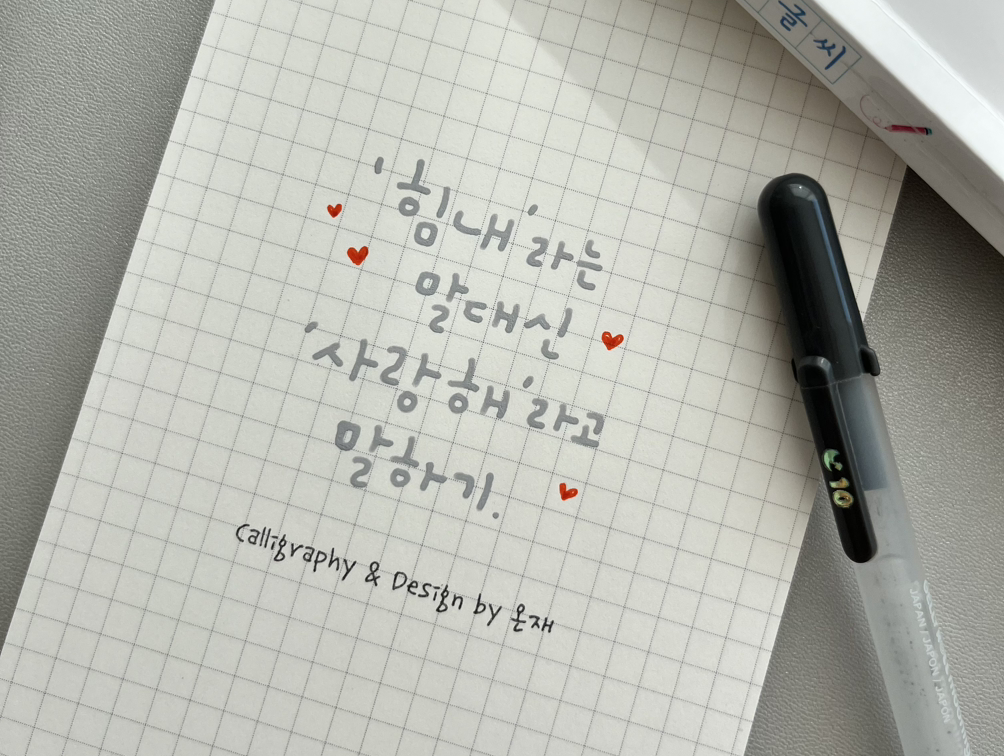 글씨
'힘내'라는
말대신
'사랑해'라고
말하기.
Calligraphy & Design by 온재
10
JAPAN / JAPON / JAPON